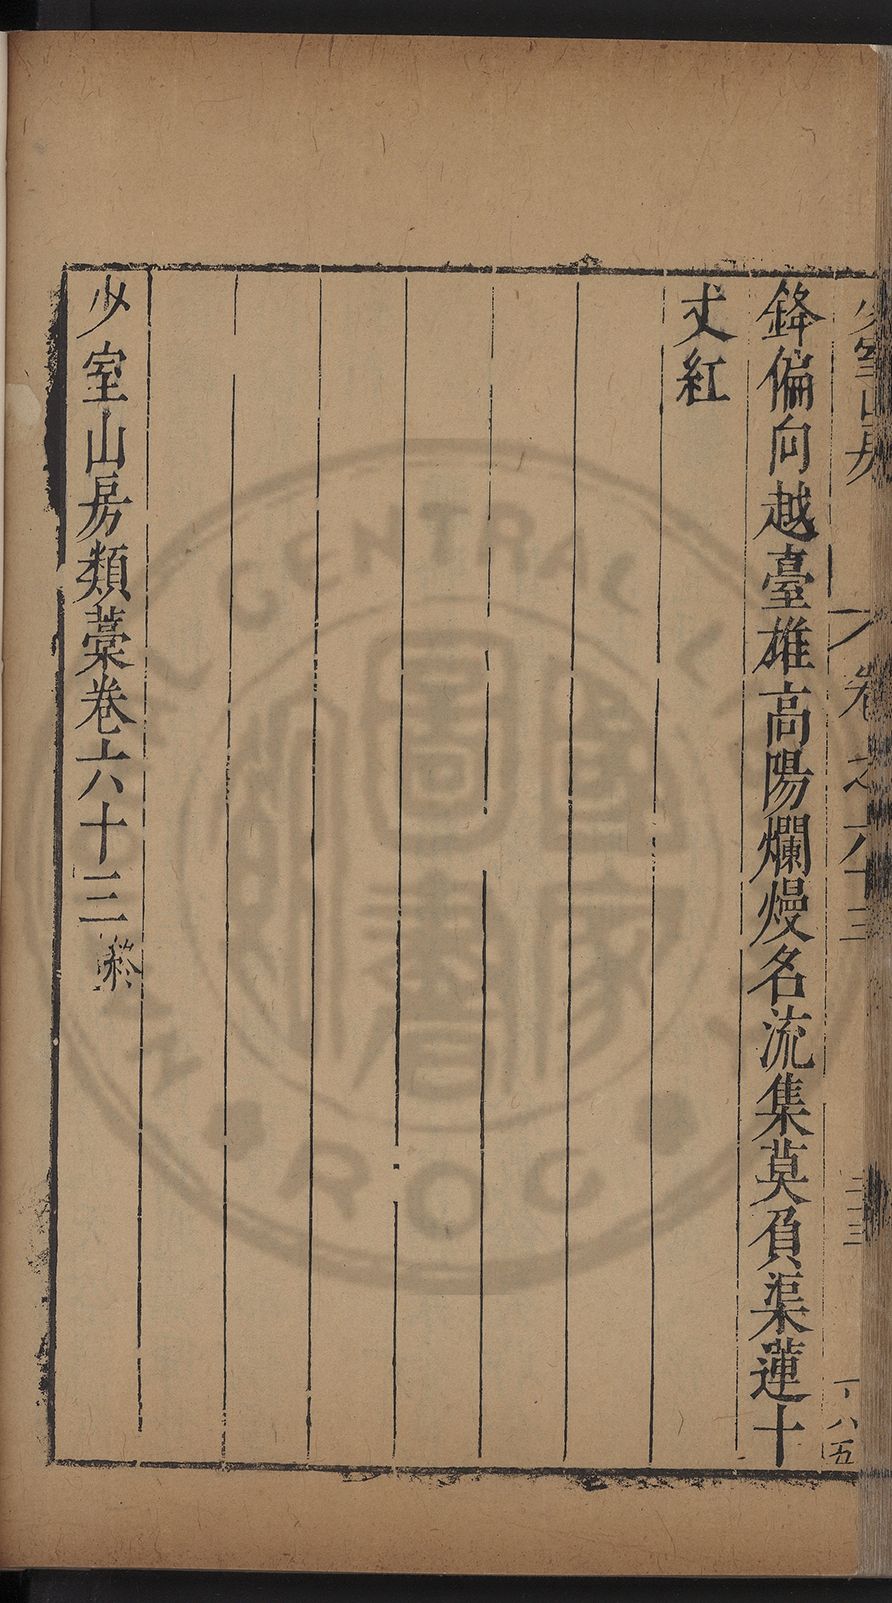 少室山房
卷之六十三
鋒偏向越臺雄高陽爛熳名流集莫負渠蓮十
丈紅
少室山房類藁卷六十三終
CENTRAL
ROC
國家
圖書